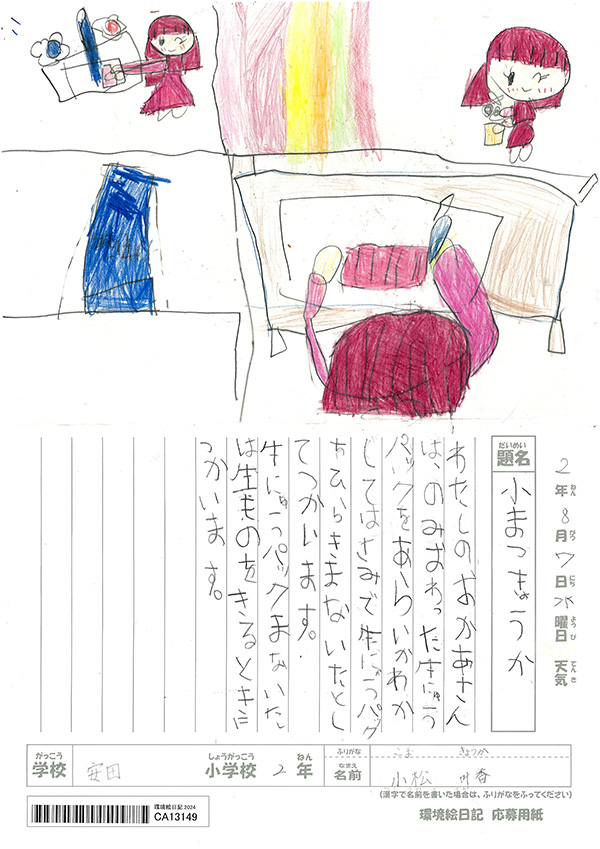 2年8月7日水曜日 天気
ねん がつ にち ようび てんき
だいめい
題名 小まつきょうか
わたしのおかあさん
は、のみおわった牛にゅう
パックをあらいかわか
してはさみで牛にゅうパック
をひらきまないたとし
てつかいます。
牛にゅうパックまないた
は生ものをきるときに
つかいます。
がっこう しょうがっこう ねん
学校 安田 小学校 2年
ふりがな こま きょうか
なまえ
名前 小松 叶香
(漢字で名前を書いた場合は、ふりがなをふってください)
環境絵日記2024
CA13149
環境絵日記 応募用紙